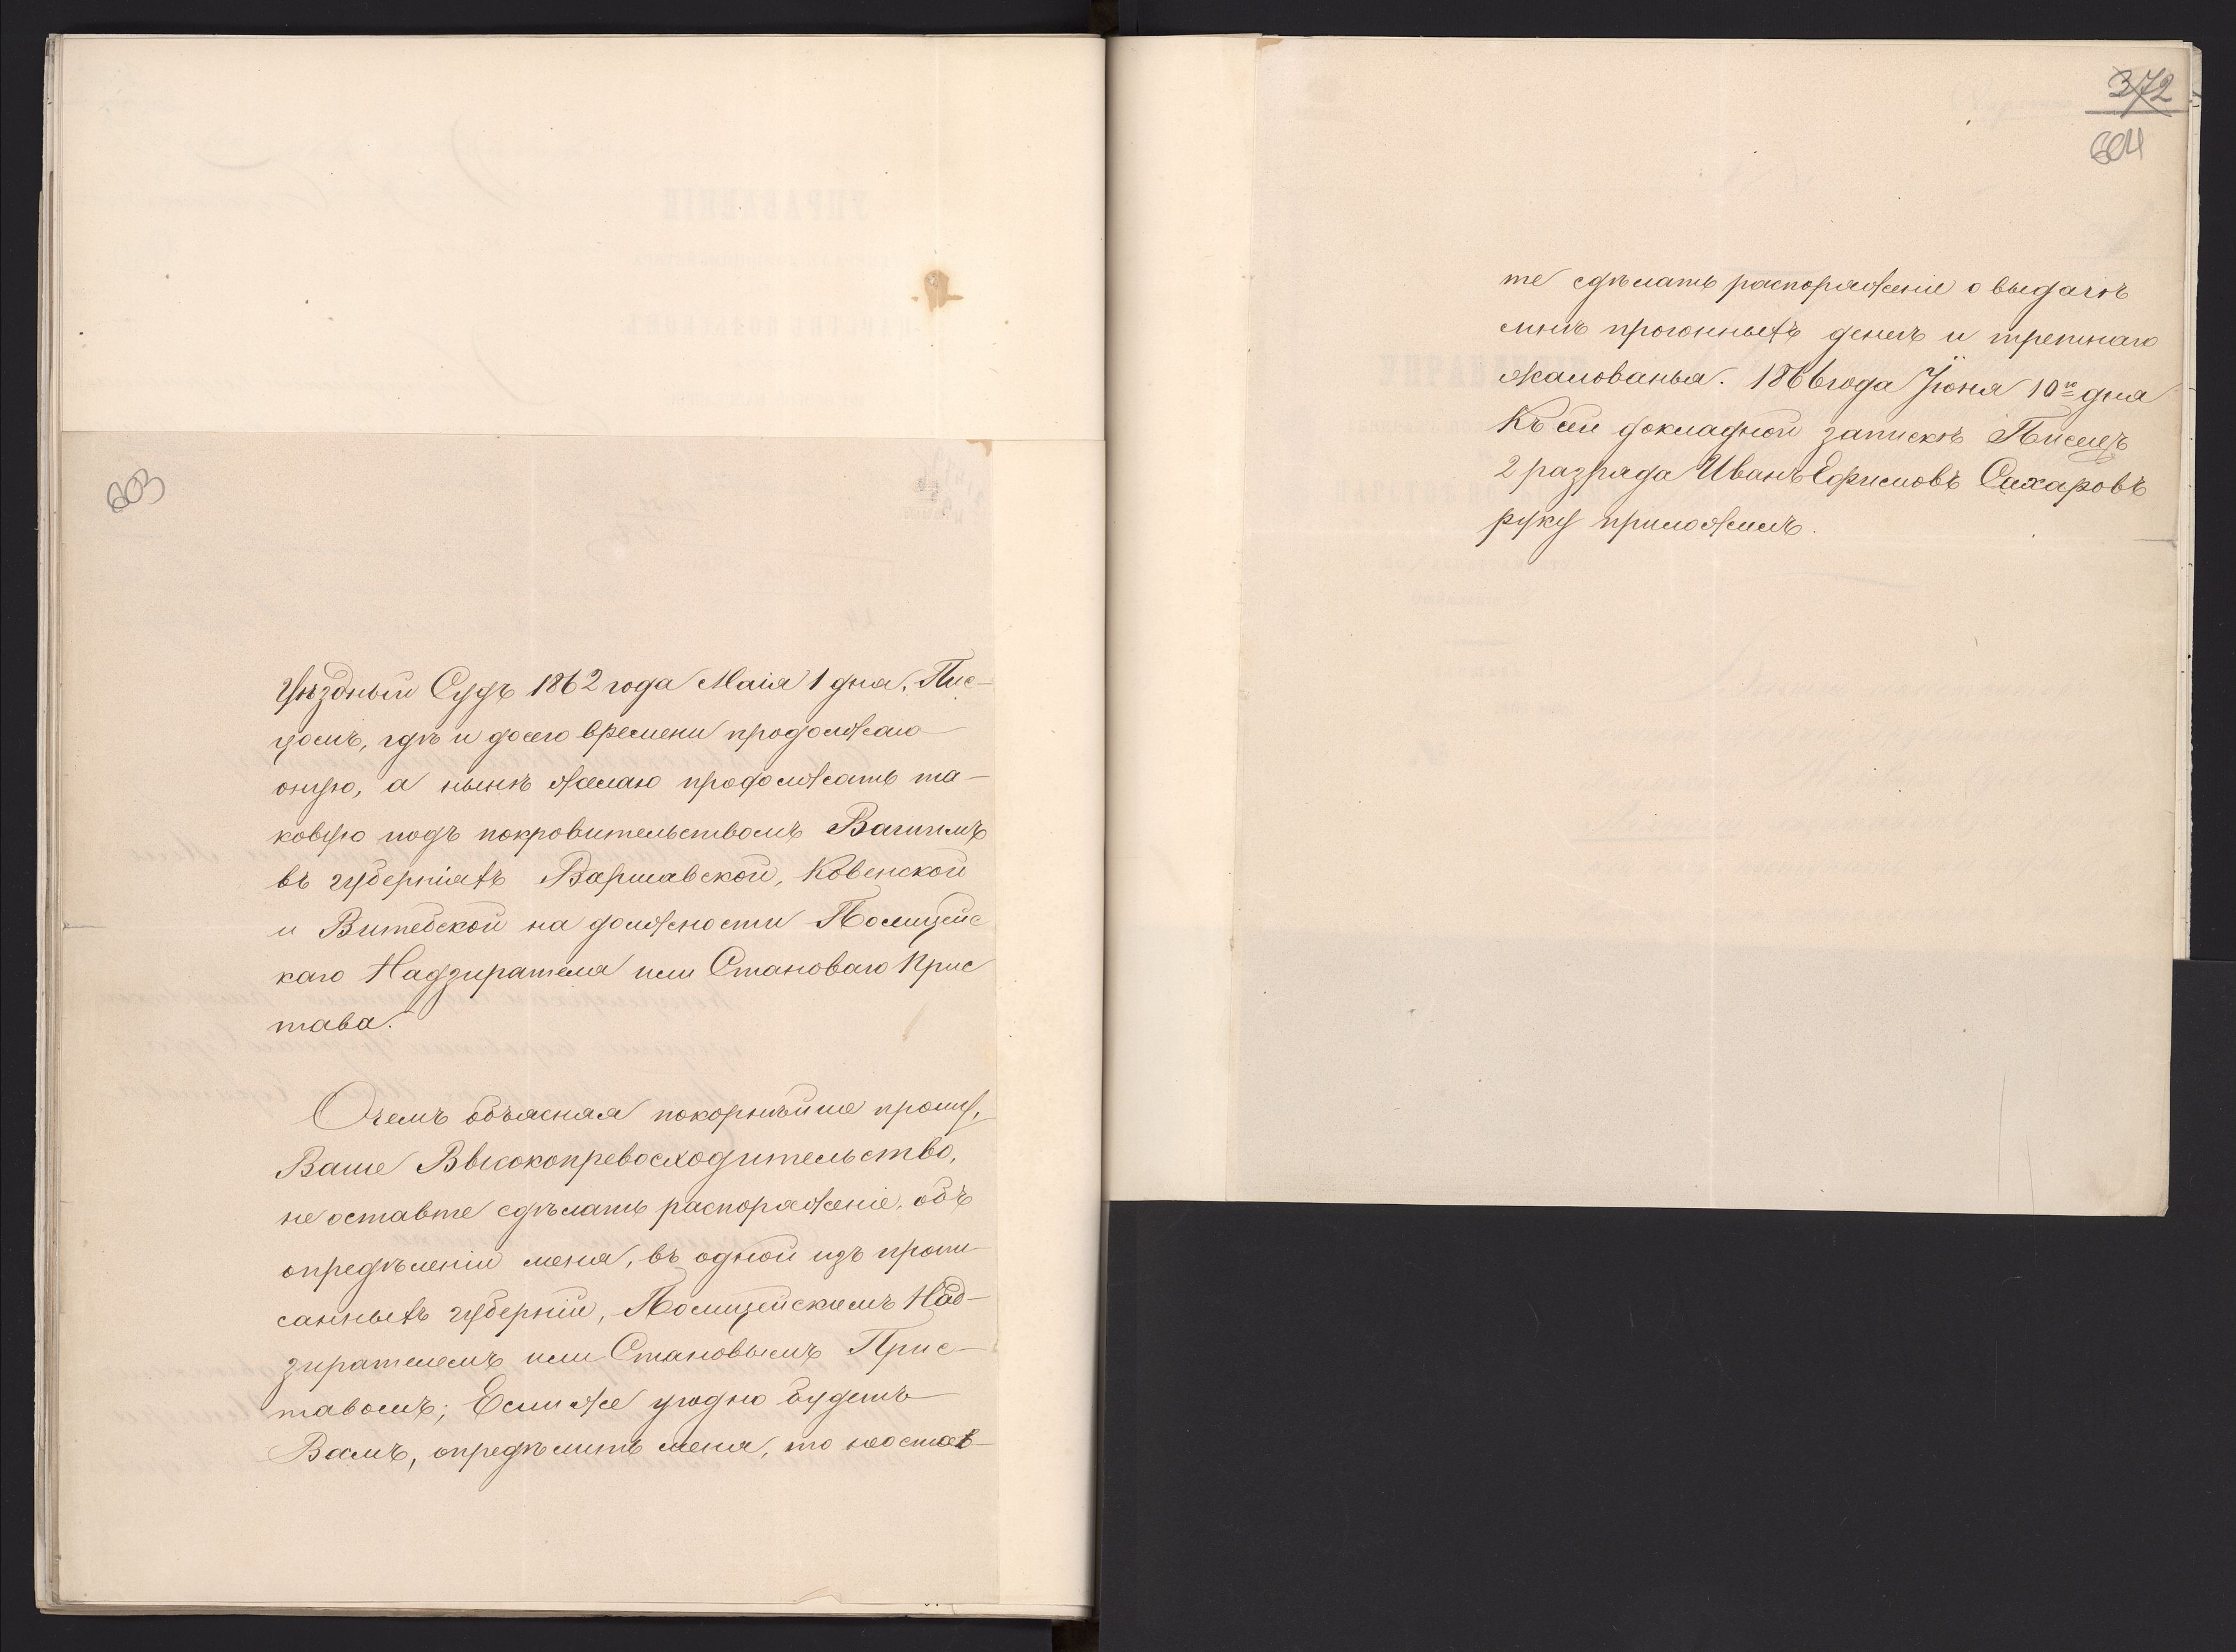 603
Уѣздный Судъ 1862 года Маія 1 дня, Пис-
цомъ, гдѣ и досего времени продолжаю
оную, а нынѣ желаю продолжать та-
ковую подъ покровительствомъ Вашимъ
въ губерніяхъ Варшавской, Ковенской
и Витебской на должности Полицейс
каго Надзирателя или Становаго Прис
тава.
Очемъ объясняя покорнѣйше прошу,
Ваше Ввысокопревосходительство,
не оставте сдѣлать распоряженіе, объ
опредѣленіи меня, въ одной изъ пропи-
санныхъ губерній, Полицейскимъ Над-
зирателемъ или Становымъ Прис-
тавомъ; Если же угодно будетъ
Вамъ, опредѣлить меня, то неостав-
372
604
те сдѣлать распоряженіе о выдачѣ
мнѣ прогонныхъ денегъ и третнаго
жалованья. 1866 года Іюня 10го дня
Къ сей докладной запискѣ Писецъ
2 разряда Иванъ Ефимовъ Сахаровъ
руку приложилъ.